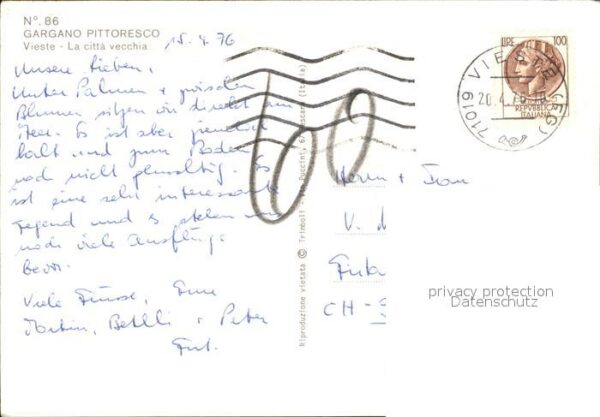 Nº. 86
GARGANO PITTORESCO
Vieste - La città vecchia
15.4.76
Unsere Lieben,
Unter Palmen + zwischen
Blumen sitzen wir direkt am
Meer. Es ist aber ziemlich
kalt und zum Baden
noch nicht geeignet. Es
ist eine sehr interessante
Gegend und es stehen uns
noch viele Ausflüge
bevor.
Viele Grüsse, Eure
Martin, Bethli + Peter
60
Riproduzione vietata © Trimboli - Via Puccini, Pescara (Italia)
LIRE 100
REPVBBLICA
ITALIANA
71019 VIESTE (FG)
20.4.76
Herrn + Frau
V.
CH-
privacy protection
Datenschutz